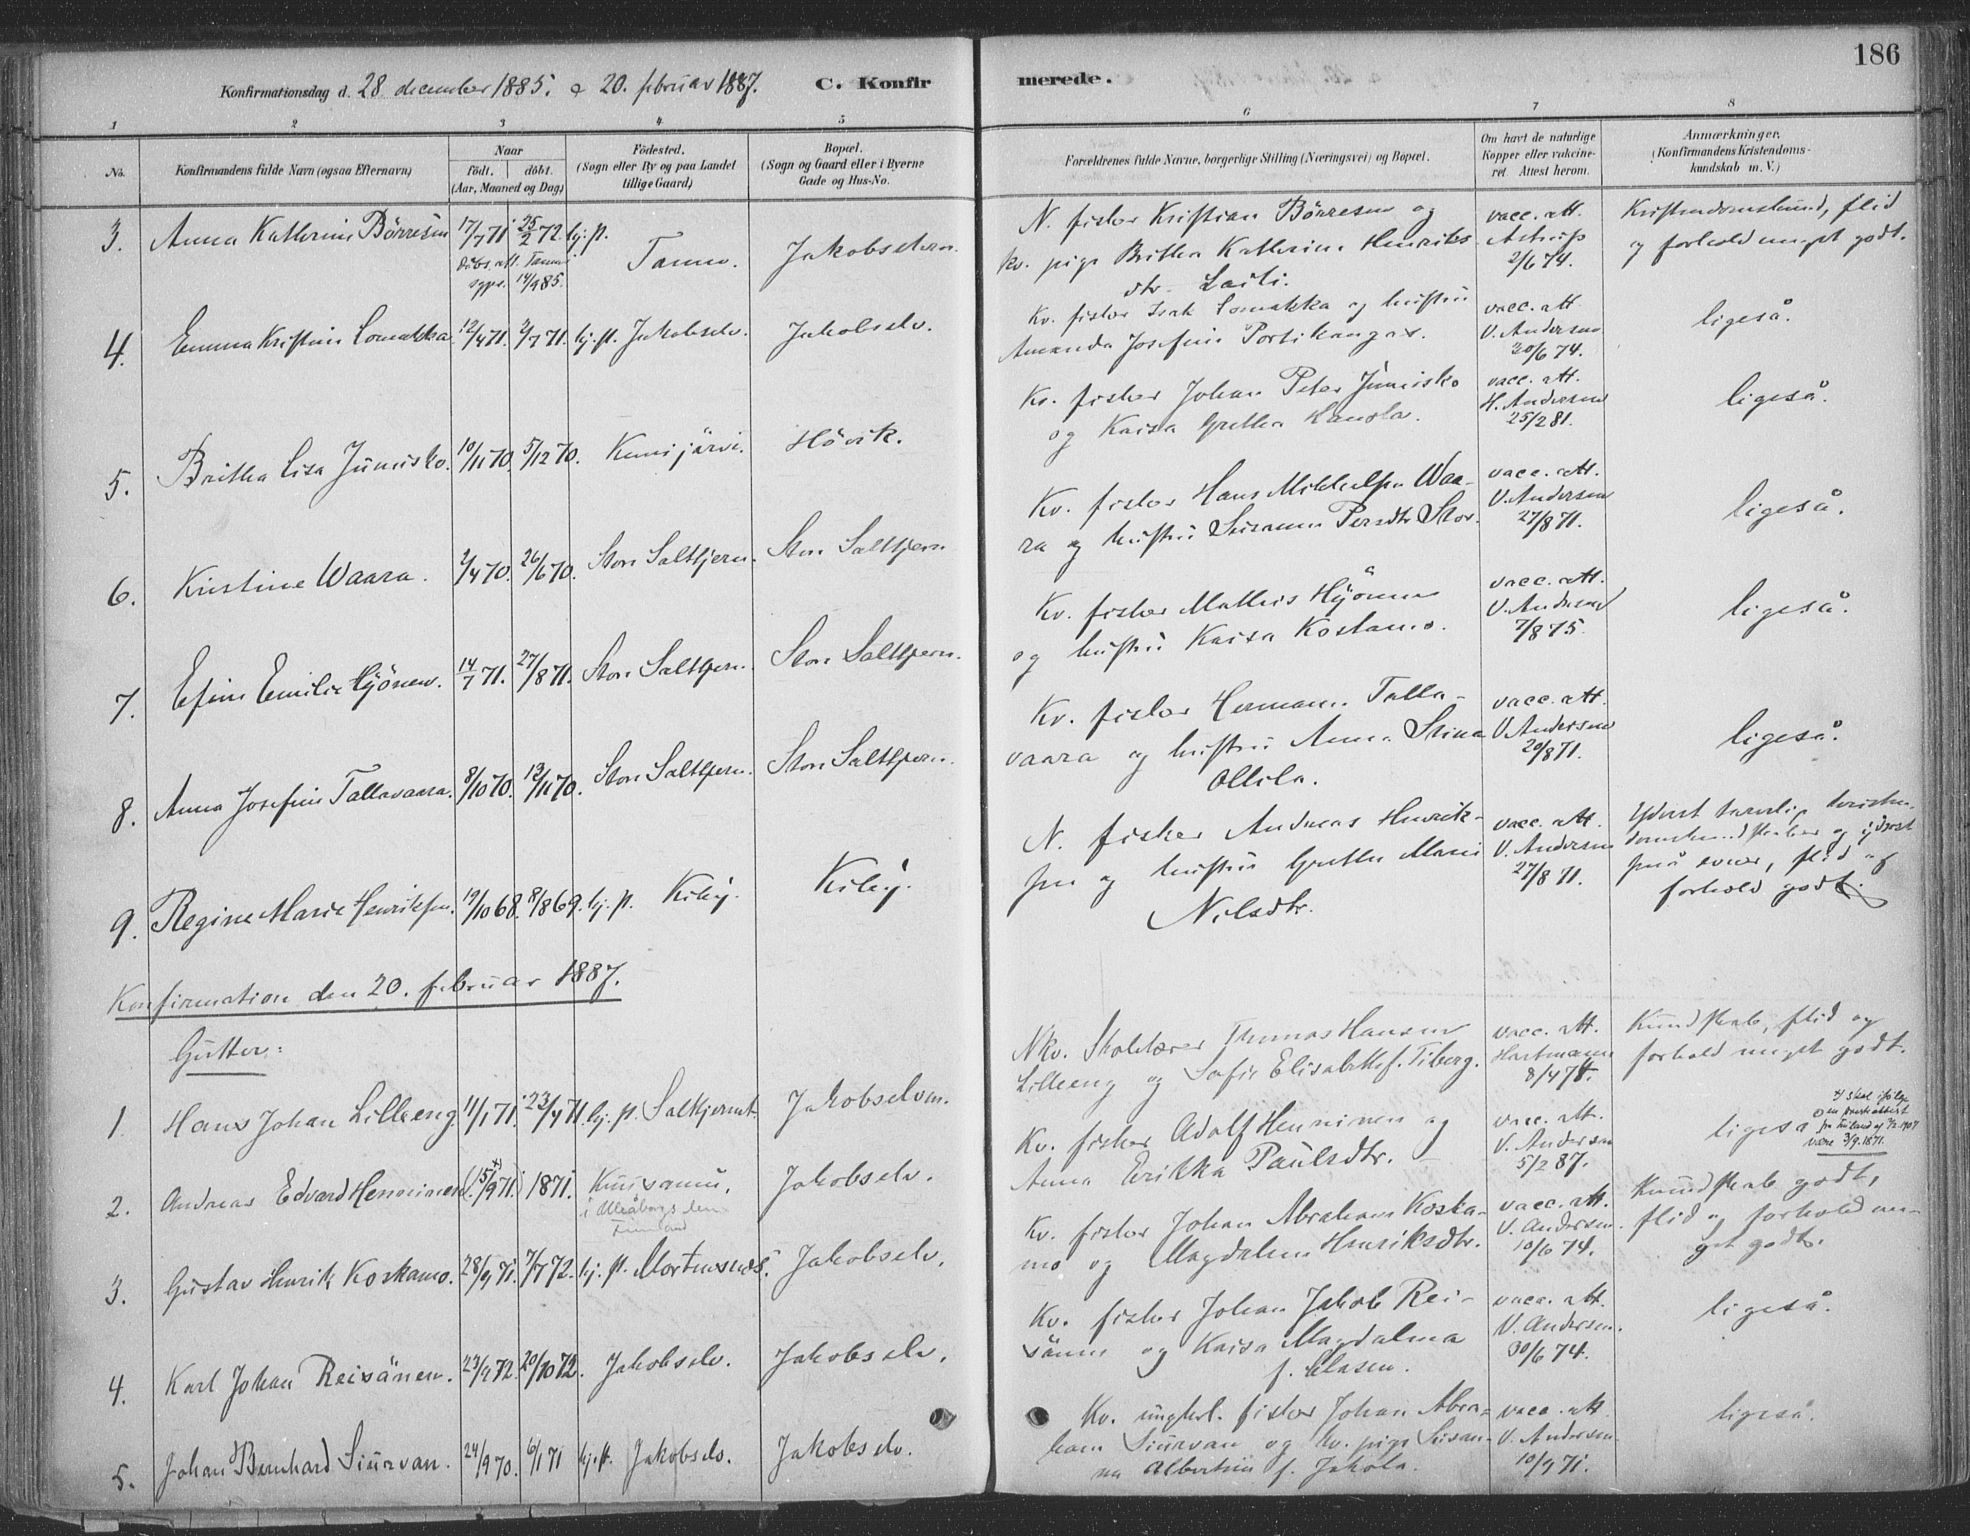 186
Konfirmationsdag d. 28 december 1885. & 20. februar 1887. C. Konfirmerede.
1 2 3 4 5 6 7 8
No. Konfirmandens fulde Navn (ogsaa Efternavn) Naar født. døbt. (Aar, Maaned og Dag)
Fødested. (Sogn eller By og paa Landet tillige Gaard)
Bopæl. (Sogn og Gaard eller i Byerne Gade og Hus-No.
Forældrenes fulde Navne, borgerlige Stilling (Næringsvei) og Bopæl.
Om havt de naturlige Kopper eller vakcineret. Attest herom.
Anmærkninger. (Konfirmandens Kristendomskundskab m. V.)
3. Anna Katherine Börresen 17/7 71. 25/2 72. hj. p. Tanen. Jakobselven.
Döbs. att. Tanen
sgpr. 14/9 85.
N. fisker Kristian Börresen og
kv. pige Britha Katherina Henriks
dtr. Laiti.
vacc. att.
Astrup
2/6 74.
Kristendomskund, flid
og forhold meget godt.
4. Emma Kristine Lomakka. 12/4 71. 2/7 71. hj. p. Jakobselv. Jakobselv.
Kv. fisker Isak Lomakka og hustru
Amanda Josefine Portikangas.
vacc. att
V. Andersen
30/6 74.
ligeså.
5. Britha Lisa Junisko. 10/11 70. 5/12 70. Kemijärvi. Hövik.
Kv. fisker Johan Peter Junisko
og Kaisa Gretha Kanola.
vacc. att.
H. Andersen
25/2 81.
ligeså.
6. Kristine Waara. 2/4 70. 26/6 70. Store Saltkjern. Store Saltkjern
Kv. fisker Hans Mikkelsen Waa-
ra og hustru Susanna Persdtr Stor.
vacc. att.
V. Andersen
27/8 71.
ligeså.
7. Efine Emilie Hyönen. 14/7 71. 27/8 71. Store Saltkjern. Store Saltkjern.
Kv. fisker Mathis Hyönen
og hustru Kaisa Kostamo.
vacc. att.
V. Andersen
7/8 75.
ligeså.
8. Anna Josefine Tallavaara. 8/10 70. 13/11 70. Store Saltkjern. Store Saltkjern.
Kv. fisker Hermann Talla-
vaara og hustru Anna Stina
Ollila.
vacc. att.
V. Andersen
20/8 71.
ligeså.
9. Regine Marie Henriksen. 19/10 68. 8/8 69. hj. p. Kiby. Kiby.
N. fisker Andreas Henrik-
sen og hustru Grethe Marie
Nilsdtr.
vacc. att.
V. Andersen
27/8 71.
Yderst tarvelig kristen-
domskundskaber og yderst
små evner, flid og
forhold godt.
Konfirmation den 20. februar 1887.
Gutter:
1. Hans Johan Lilleeng 11/1 71. 23/4 71. hj. p. Saltkjernet. Jakobselven.
Nkv. Skolelærer Thomas Hansen
Lilleeng og Sofie Elisabeth f. Tiberg.
vacc. att.
Hartmann
8/4 78.
Kundskab, flid og
forhold meget godt.
2. Andreas Edvard Henninen (15/9 71.) +) 1871. Kuusamu, Jakobselv.
i Uleåborgs len
Finland
Kv. fisker Adolf Henninen og
Anna Erikka Paulsdtr.
vacc. att.
V. Andersen
5/2 87.
ligeså
+) skal ifölge
en prestattest
fra Finland af 7/2 1907
være 3/9. 1871.
3. Gustav Henrik Koskamo. 28/9 71. 7/7 72. hj. p. Mortensnes. Jakobselv.
Kv. fisker Johan Abraham Koska-
mo og Magdalena Henriksdtr.
vacc. att.
V. Andersen.
10/6 74.
Kundskab godt,
flid og forhold me-
get godt.
4. Karl Johan Reisänen. 23/9 72. 20/10 72. Jakobselv. Jakobselv.
Kv. fisker Johan Jakob Rei-
sänen og Kaisa Magdalena
f. Clasen.
vacc. att.
V. Andersen.
30/6 74.
ligeså.
5. Johan Bernhard Siurvan. 24/9 70. 6/1 71 hj. p. Jakobselv. Jakobselv.
Kv. ungkarl. fisker Johan Abra-
ham Siurvan og kv. pige Susan-
na Albertine f. Jakola.
vacc. att
V. Andersen.
10/9 71.
ligeså.